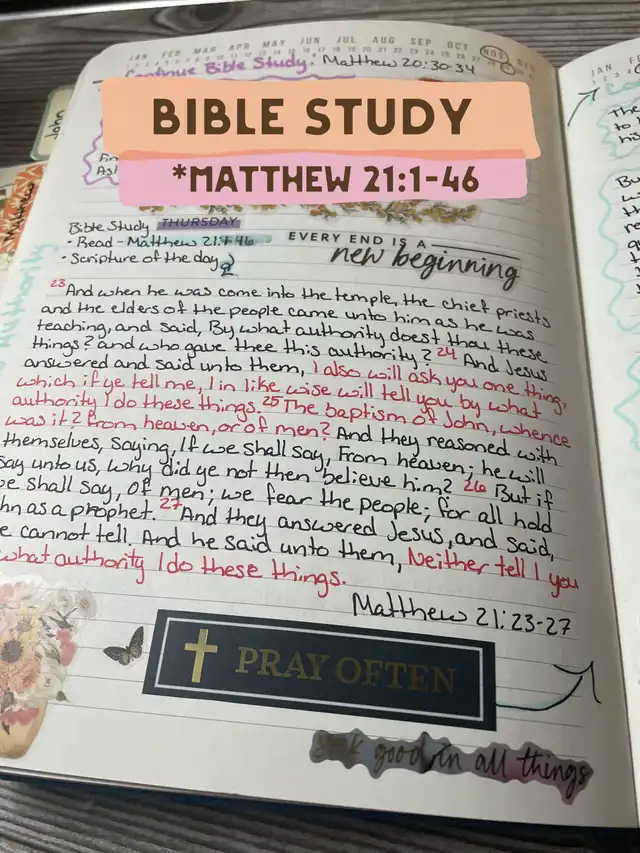 JAN FEB MAR APR MAY JUN JUL AUG SEP OCT NOV DEC
Continue Bible Study: Matthew 20:30-34
BIBLE STUDY
*MATTHEW 21:1-46
John
Matthew
Authority
Bible Study THURSDAY
• Read - Matthew 21:1-46
• Scripture of the day
EVERY END IS A
new beginning
23 And when he was come into the temple, the chief priests
and the elders of the people came unto him as he was
teaching, and said, By what authority doest thou these
things? and who gave thee this authority? 24 And Jesus
answered and said unto them, I also will ask you one thing,
which if ye tell me, I in like wise will tell you by what
authority I do these things. 25 The baptism of John, whence
was it? from heaven, or of men? And they reasoned with
themselves, saying, If we shall say, From heaven; he will
say unto us, why did ye not then believe him? 26 But if
we shall say, Of men; we fear the people; for all hold
hn as a prophet. 27 And they answered Jesus, and said,
e cannot tell. And he said unto them, Neither tell I you
what authority I do these things.
Matthew 21:23-27
PRAY OFTEN
good in all things
JAN